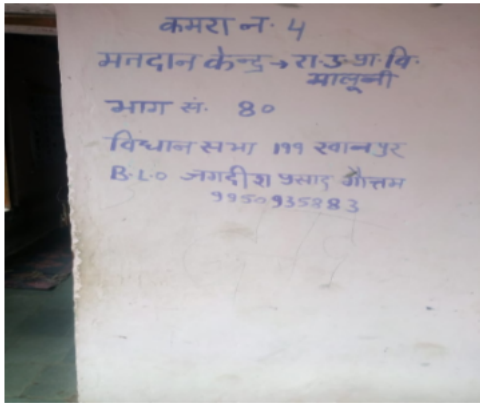 कमरा न. 4
मतदान केन्द्र → रा.उ.प्रा.वि.
मालूनी
भाग सं. 80
विधान सभा 199 खानपुर
B.L.O जगदीश प्रसाद गौत्तम
9950935883